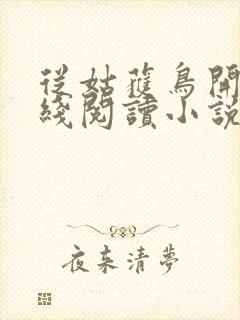 從姑獲鳥開
綫閱讀小說
夜來清夢